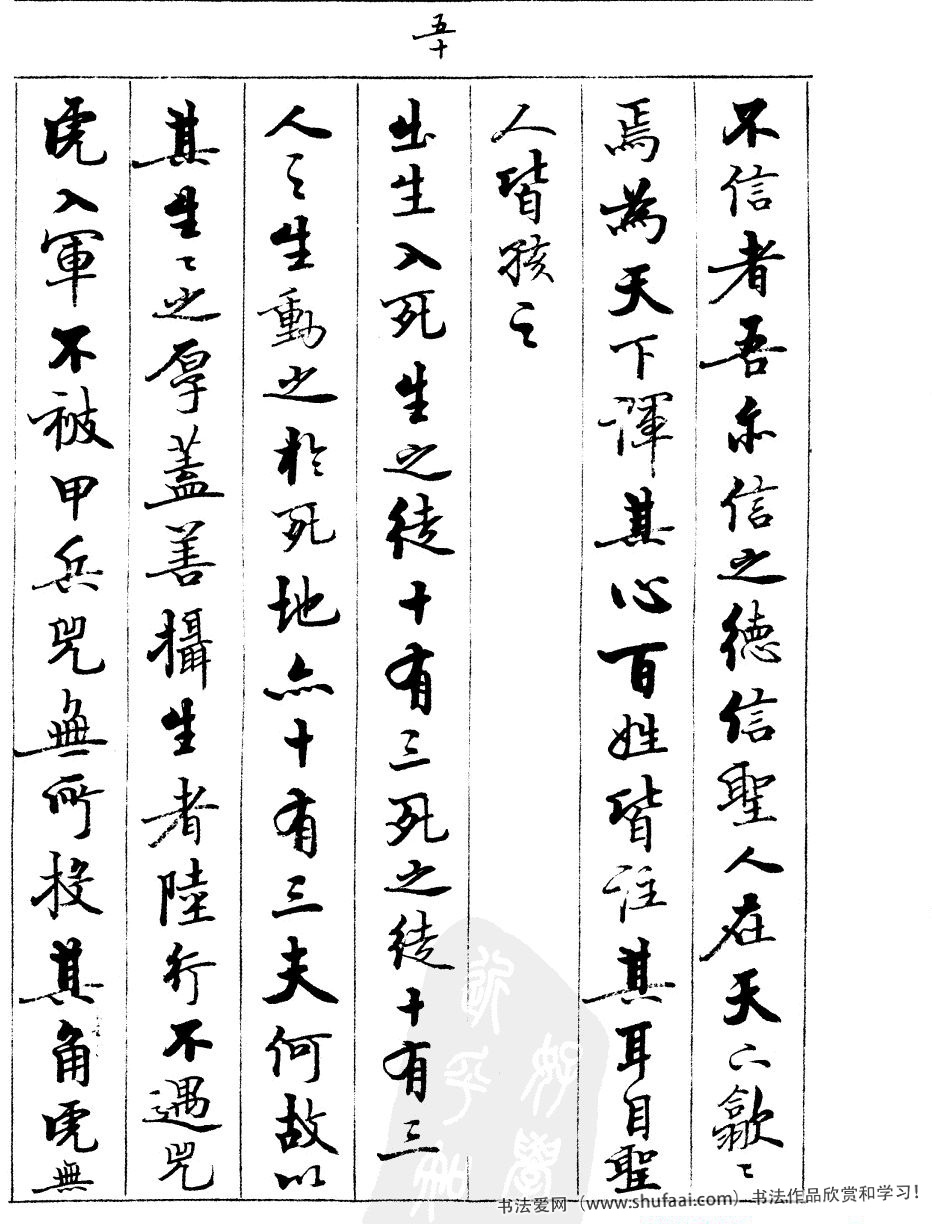 五十
不信者吾亦信之德信聖人在天下歙〻
焉為天下渾其心百姓皆注其耳目聖
人皆孩之
出生入死生之徒十有三死之徒十有三
人之生動之於死地亦十有三夫何故以
其生〻之厚蓋善攝生者陸行不遇兕
虎入軍不被甲兵兕無所投其角虎無
好學
近乎知
书法爱网（www.shufaai.com）书法作品欣赏和学习！